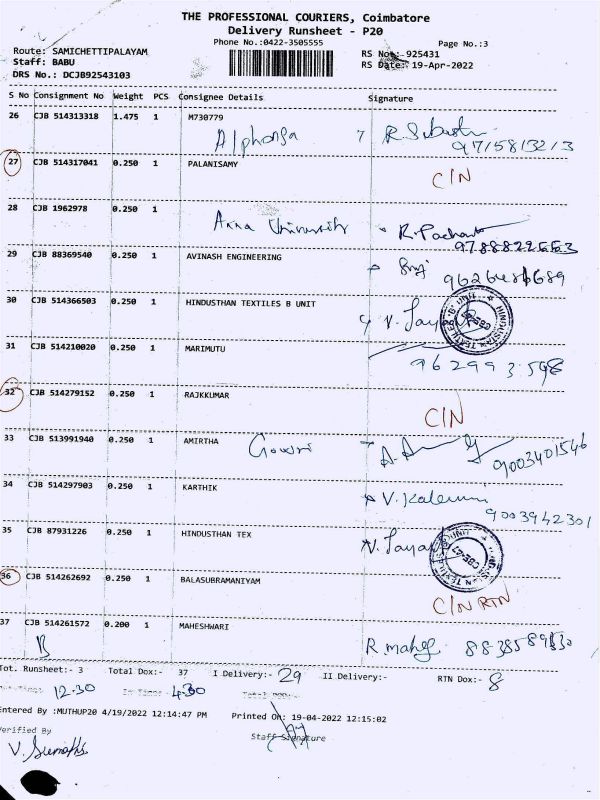 THE PROFESSIONAL COURIERS, Coimbatore
Delivery Runsheet - P20
Phone No.:0422-3505555
Page No.:3
Route: SAMICHETTIPALAYAM
Staff: BABU
DRS No.: DCJB92543103
RS No :-925431
RS Date:- 19-Apr-2022
S No Consignment No Weight PCS Consignee Details Signature
26 CJB 514313318 1.475 1 M730779
Alphonsa 7 R. 9715813213
27 CJB 514317041 0.250 1 PALANISAMY
C/N
28 CJB 1962978 0.250 1
Anna University R. 9788822553
29 CJB 88369540 0.250 1 AVINASH ENGINEERING
30 CJB 514366503 0.250 1 HINDUSTHAN TEXTILES B UNIT
31 CJB 514210020 0.250 1 MARIMUTU
32 CJB 514279152 0.250 1 RAJKKUMAR
C/N
33 CJB 513991940 0.250 1 AMIRTHA Gowri
9003401546
34 CJB 514297903 0.250 1 KARTHIK
9003942301
35 CJB 87931226 0.250 1 HINDUSTHAN TEX
36 CJB 514262692 0.250 1 BALASUBRAMANIYAM
C/N RTN
37 CJB 514261572 0.200 1 MAHESHWARI
B
Tot. Runsheet:- 3 Total Dox:- 37 I Delivery:- 29 II Delivery:- RTN Dox:- 8
12.30 In Time:- 4.30
Entered By :MUTHUP20 4/19/2022 12:14:47 PM Printed On: 19-04-2022 12:15:02
Verified By Staff Signature